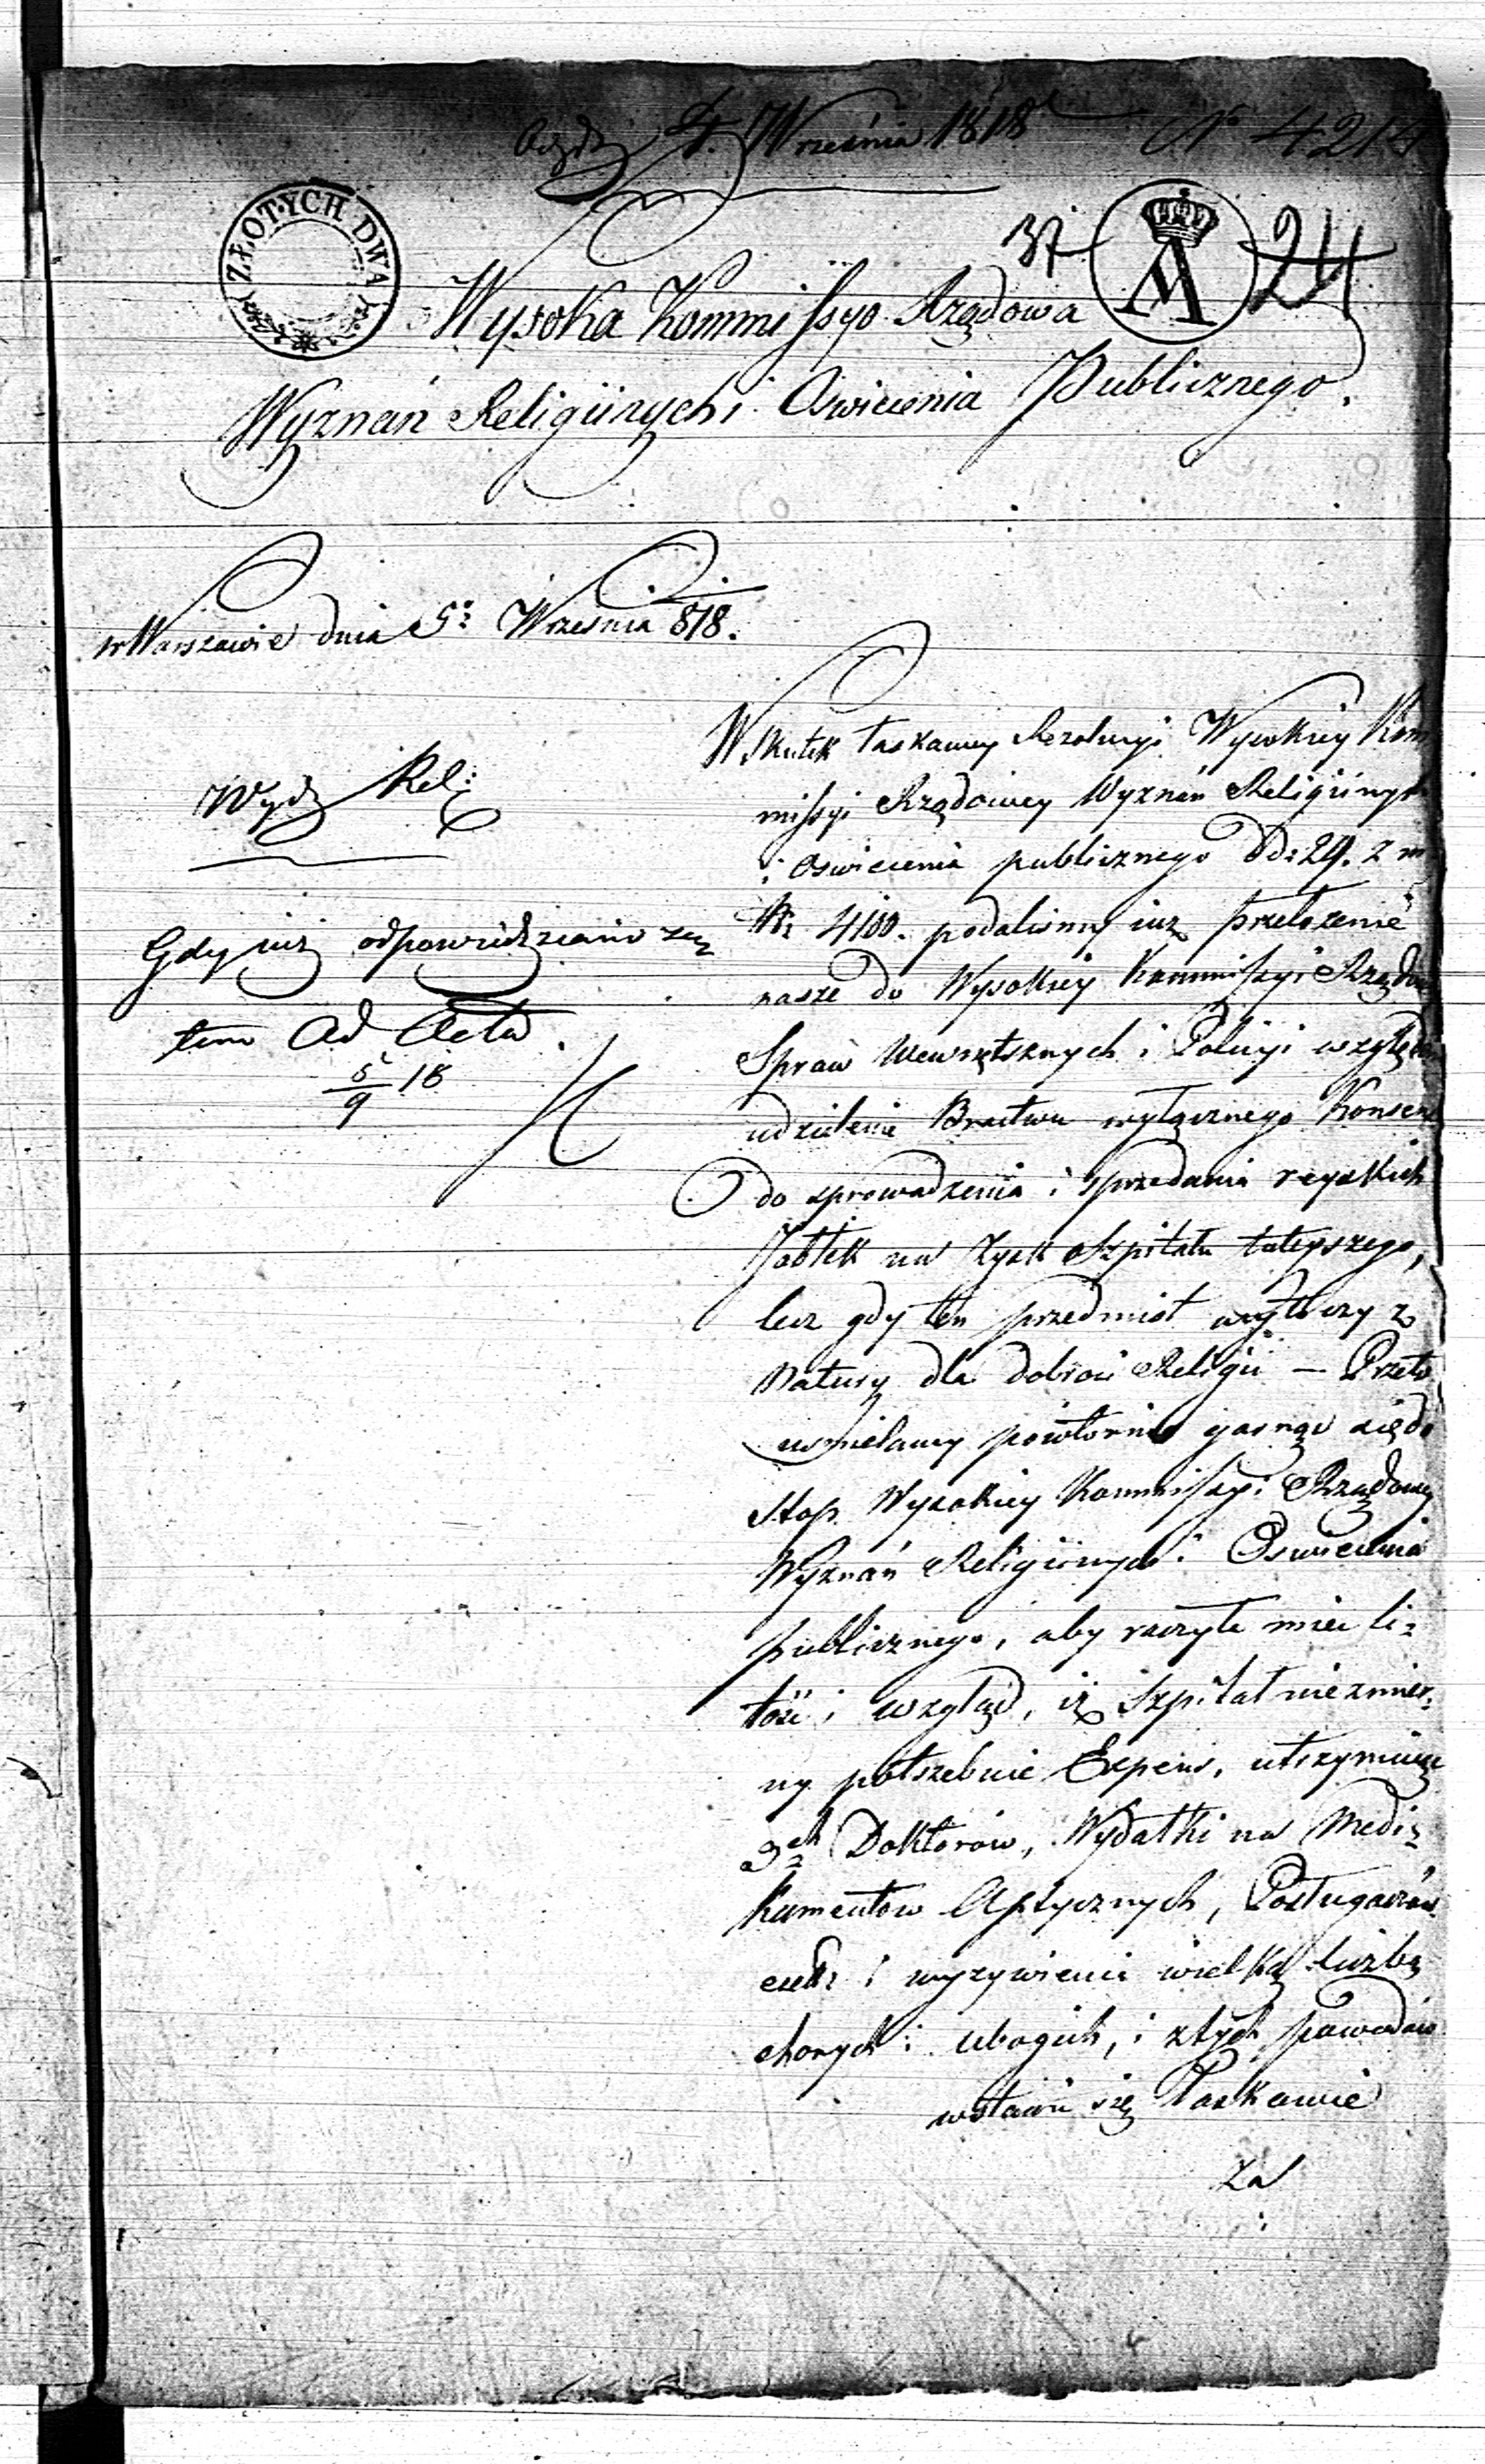 4. Września 1818
N 4214
ZŁOTYCH DWA
37
24
Wysoka Kommissyo Rządowa
Wyznań Religiinych i Oswiecenia Publicznego.
w Warszawie dnia 5 Wrzesnia 818.
Wydz Rel:
Gdy iuż odpowiedziano
tem Ad Acta.
5/9 18
W skutek łaskawey Rezolucyi Wysokiey Kom
missyi Rządowey Wyznań Religiinych
i Oswiecenia publicznego dd: 29. z m
Nr 4100. podalismy iuz przełozenie
nasze do Wysokiey Kommissyi Rządow
Spraw Wewnętsznych i Policyi względ
udzielenie Bractwu wyłącznego Konsens
do sprowadzenia i sprzedania rayskich
Jabłek na Zysk Szpitalu tuteyszego,
lecz gdy ten przedmiot z
Natury dla dobroci Religii — Przeto
usmielamy powtornie się do
stop Wysokiey Kommissyi Rządowey
Wyznań Religiinych i Oswiecenia
publicznego, aby raczyła miec li-
tość i wzgląd, iż Szpital niezmier-
ny potszebuie Expens, utszymuie
Doktorów, Wydatki na Medi-
kamentow Aptycznych, Posługaczów
i wyzywieni wielką liczbę
chorych i ubogich, i z tych powodów
wstawić się Łaskawie
Za